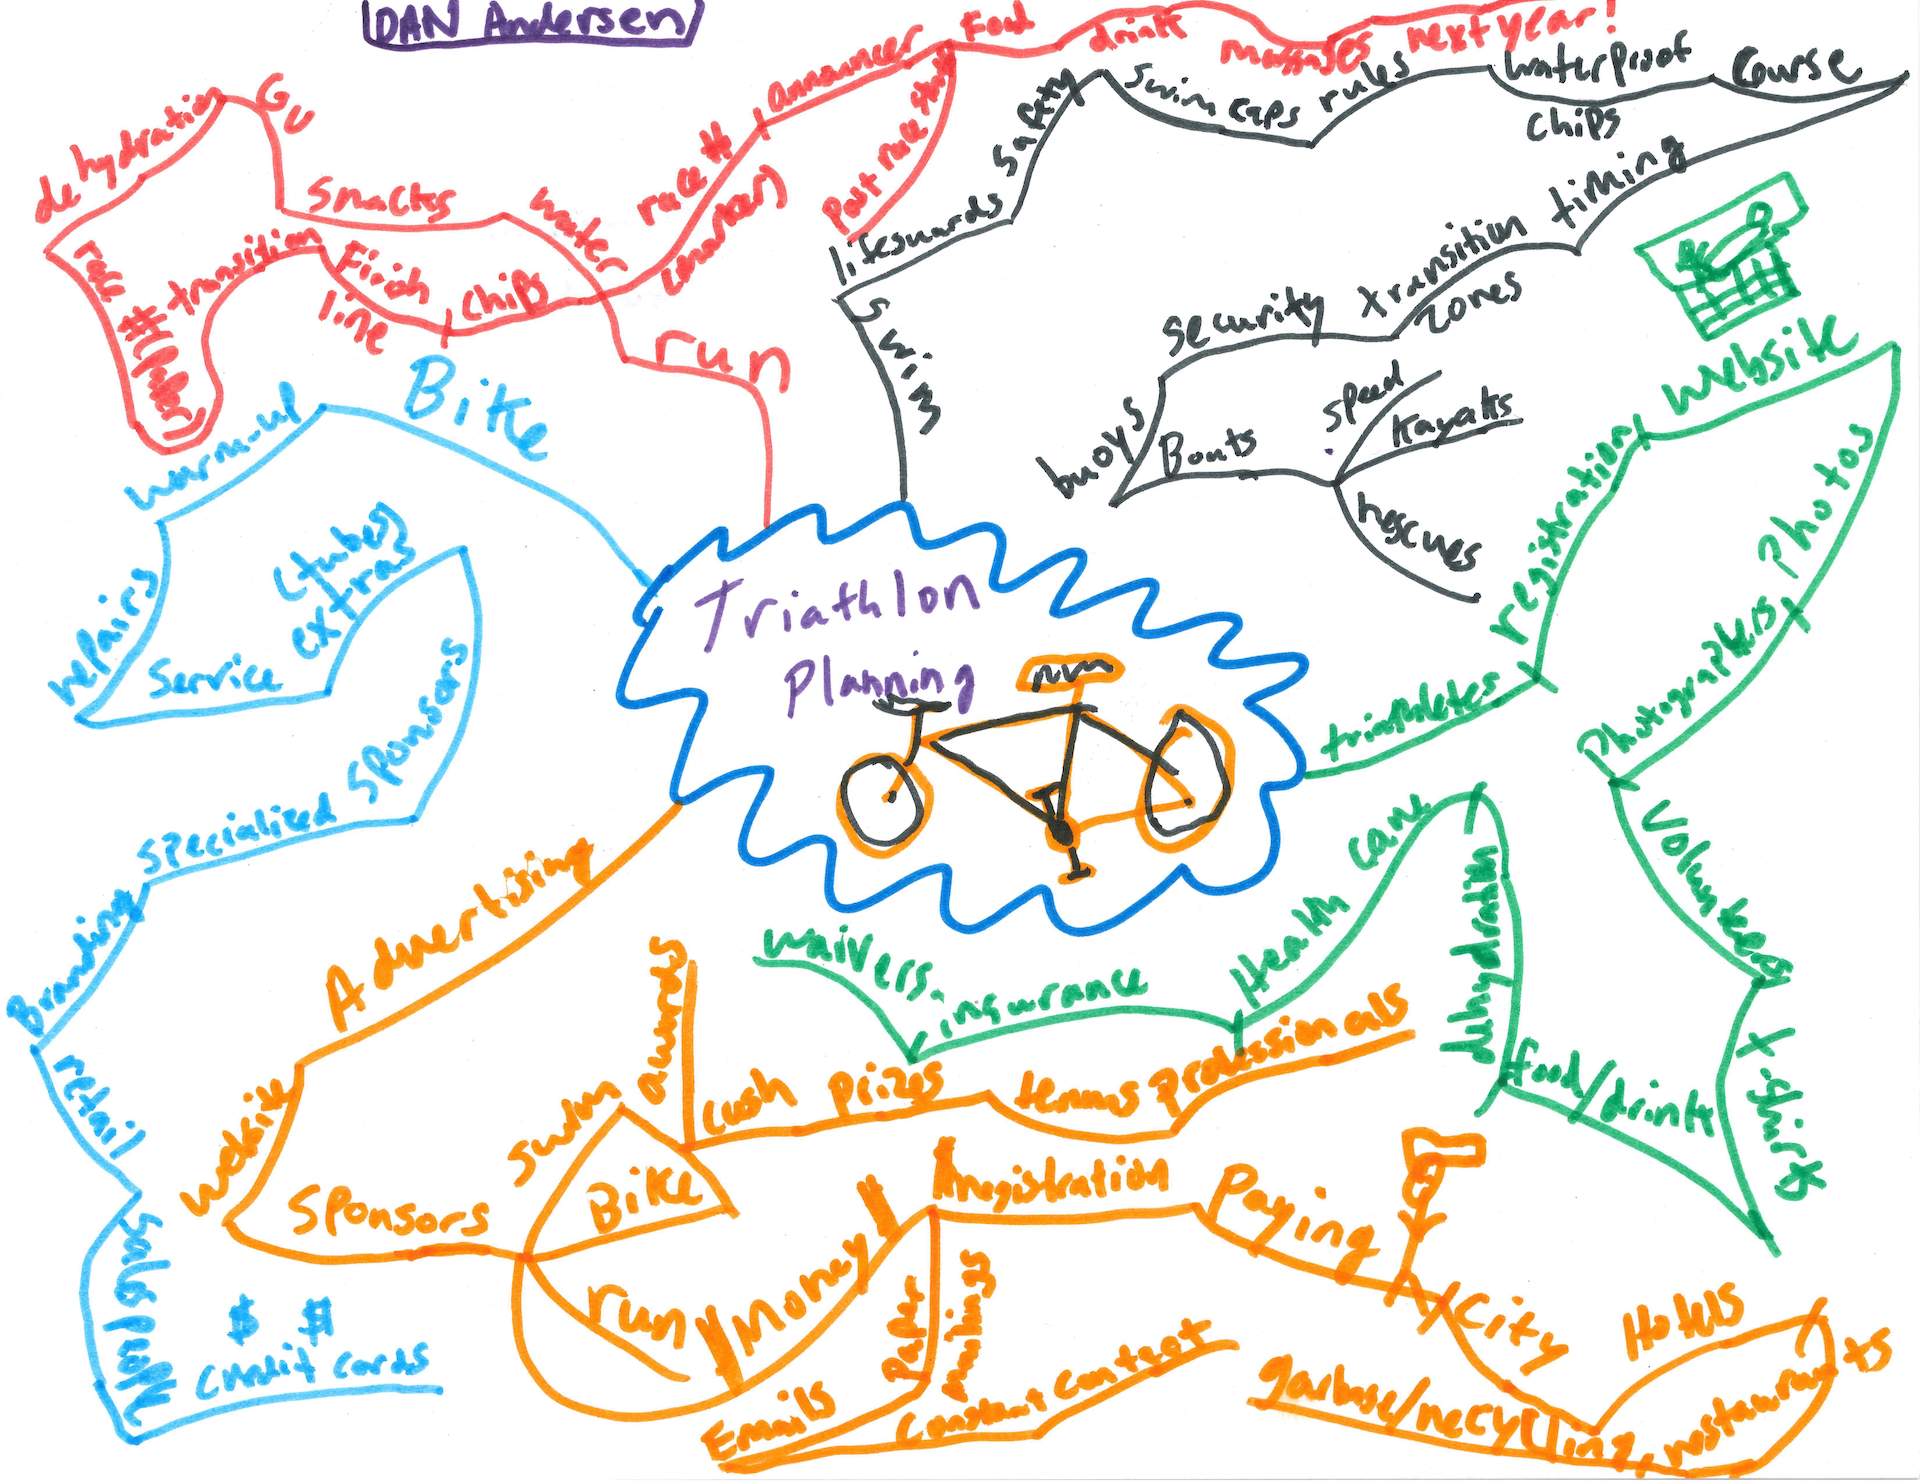 DAN Andersen
Food drink massages next year!
announcer
race #
(marker)
Post race
dehydration
GU
Snacks
water
race # (paper)
transition
Finish line
chips
run
Swim
lifeguards
safety
Swim caps
rules
waterproof chips
Course
timing
transition zones
security
buoys
Boats
speed
Kayaks
rescues
Bike
warm-up
repairs
Service
extras
(tubes)
Sponsors
Specialized
Branding
retail
$ $
credit cards
Triathlon
Planning
triathletes
registration
website
Photos
Photographers
Volunteers
T-shirts
food/drink
dehydration
Health care
insurance
waivers
Advertising
website
Sponsors
Swim
Bike
run
awards
cash prizes
teams
professionals
Money
registration
Paper mailings
Emails
Constant Contact
Paying
City
Hotels
restaurants
garbage/recycling